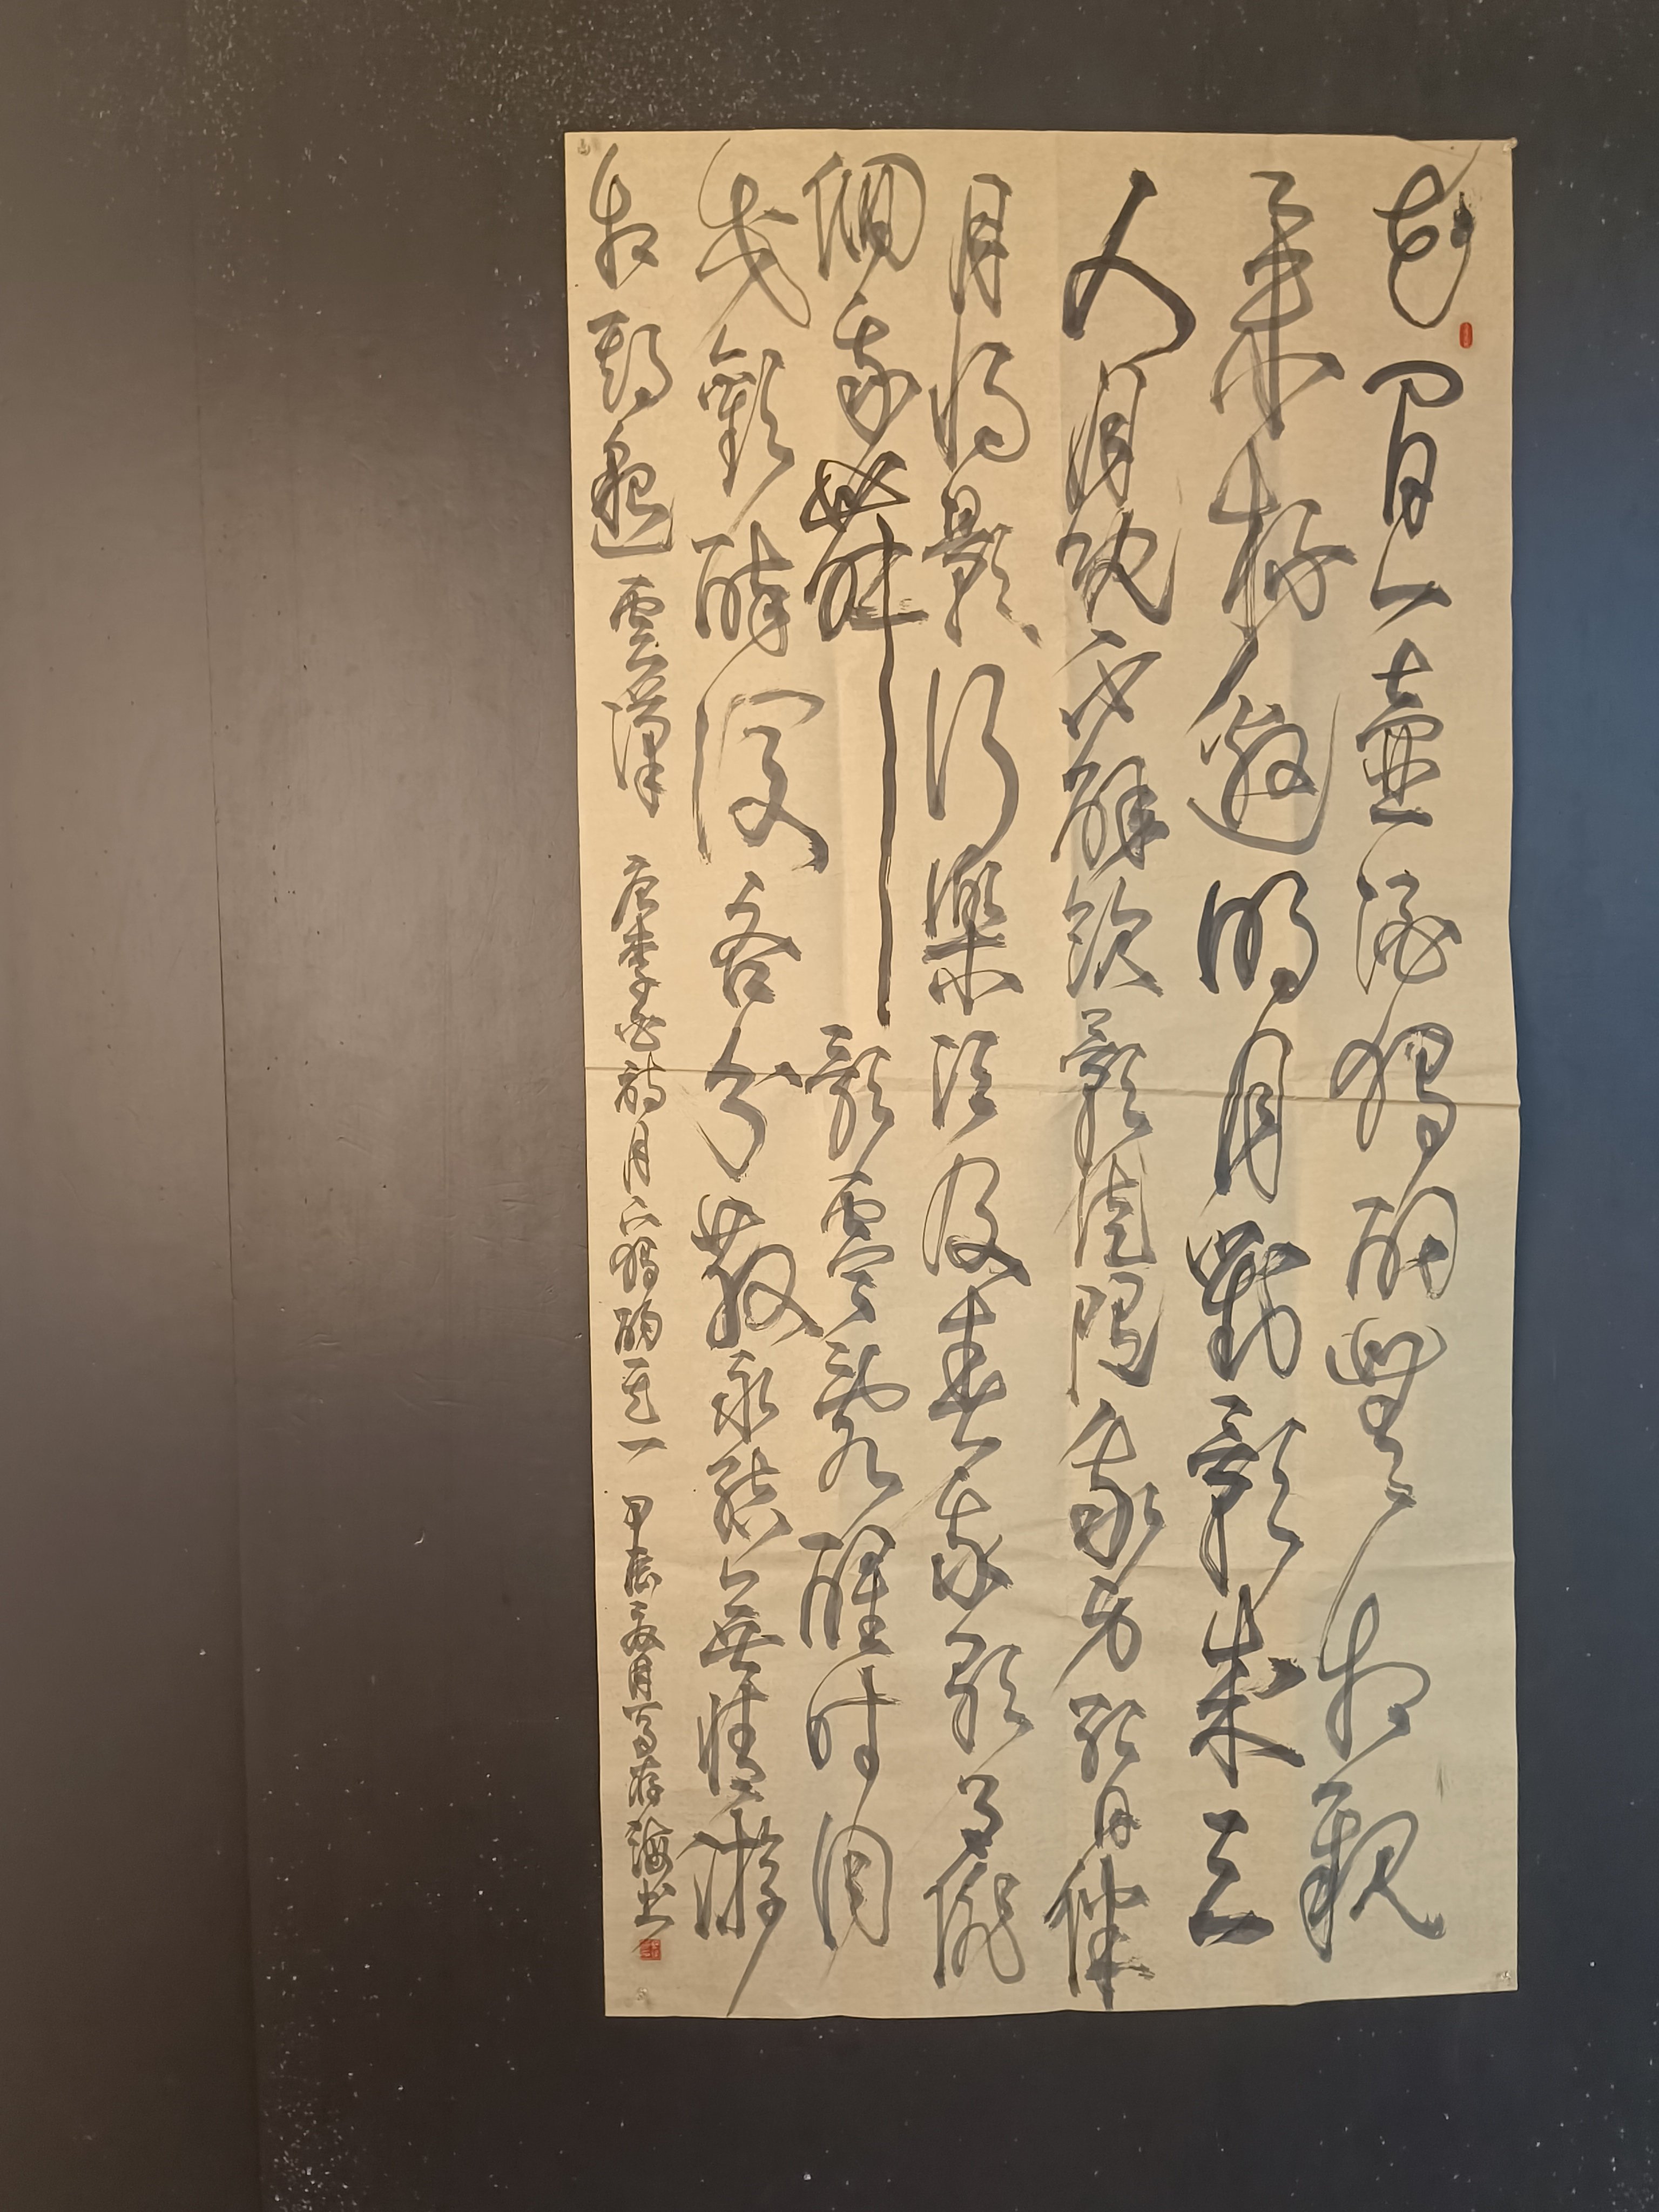 花間一壺酒獨酌無相親
舉杯邀明月對影成三
人月既不解飲影徒隨我身暫月伴
月將影行樂須及春我歌月俳
徊我舞影零亂醒時同
交歡醉後各分散永結無情游
相期邈雲漢 唐李白詩月下獨酌其一 甲辰夏月写存海书